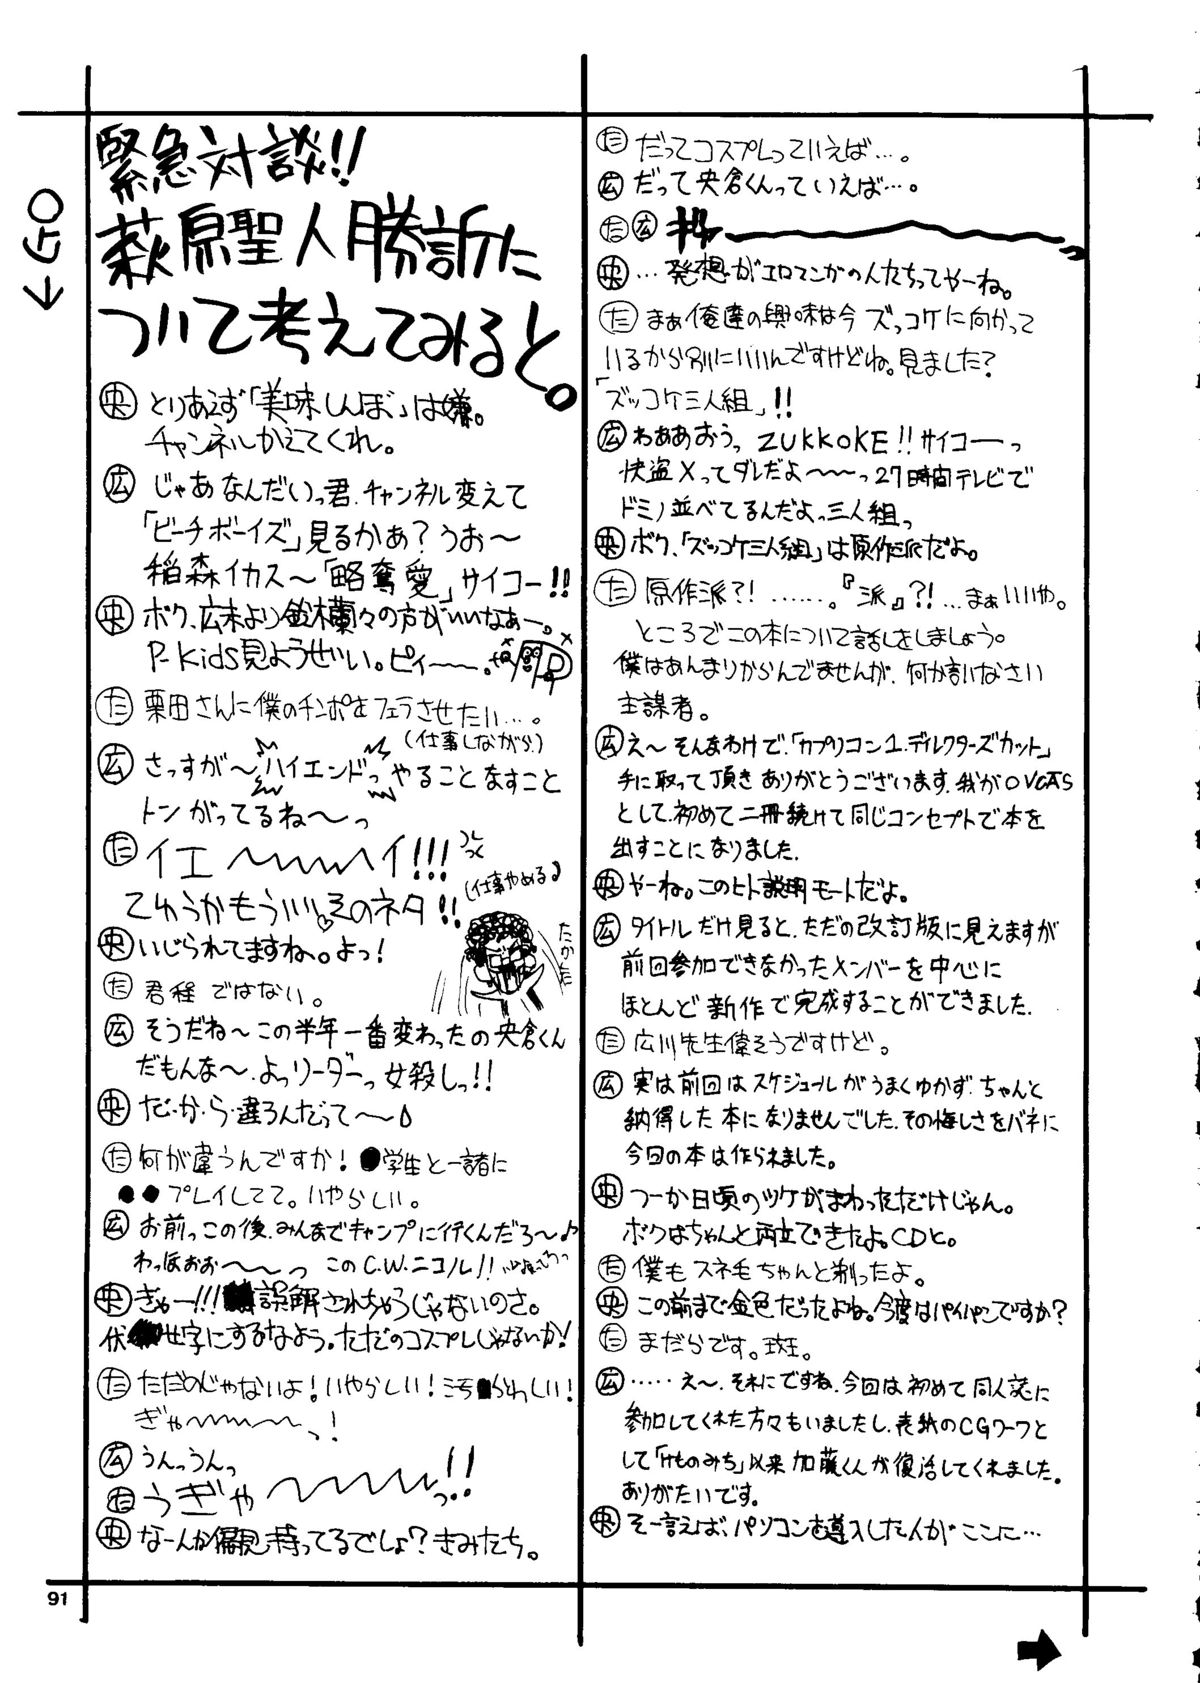 ←GO
緊急対談!!
萩原聖人勝訴に
ついて考えてみると。
央 とりあえず「美味しんぼ」は嫌。
チャンネルかえてくれ。
広 じゃあなんだいっ君、チャンネル変えて
「ビーチボーイズ」見るかぁ?うお〜
稲森イカス〜「略奪愛」サイコー!!
央 ボク、広末より鈴木蘭々の方がいいなぁー。
P-Kids見ようぜいい。ピィ——。
た 栗田さんに僕のチンポをフェラさせたい…。
(仕事しながら)
広 さっすが〜ハイエンドっやることなすこと
トンがってるね〜っ
た イエ〜〜〜イ!!!
てゅうかもういいよそのネタ!!
(仕事やめる)
たかた
央 いじられてますね。よっ!
た 君程ではない。
広 そうだね〜この半年一番変わったの央倉くん
だもんな〜、よっリーダーっ女殺しっ!!
央 だ・か・ら・違うんだって〜♪
た 何が違うんですか!●学生と一諸に
●●プレイしてて。いやらしい。
広 お前っこの後、みんなでキャンプに行くんだろ〜♪
わっほぉぉ〜〜っ このC.W.ニコル!!
央 ぎゃー!!!誤解されちゃうじゃないのさ。
伏せ字にするなよう。ただのコスプレじゃないか!
た ただのじゃないよ!いやらしい!ミダ●らわしい!
ぎゃ〜〜〜っ!
広 うんっうんっ
た うぎゃ〜〜〜っ!!
央 なーんか偏見持ってるでしょ?きみたち。
た だってコスプレっていえば…。
広 だって央倉くんっていえば…。
た 広 ギャ——————っ
央 …発想がエロマンガの人たちってやーね。
た まぁ俺達の興味は今ズッコケに向かって
いるから別にいいんですけどね。見ました?
「ズッコケ三人組」!!
広 わああおうっ ZUKKOKE!!サイコーっ
快盗Xってダレだよ〜〜っ27時間テレビで
ドミノ並べてるんだよっ三人組っ
央 ボク、「ズッコケ三人組」は原作派だよ。
た 原作派?!……。『派』?!…まぁいいや。
ところでこの本について話しをしましょう。
僕はあんまりからんでませんが、何か言いなさい
主謀者。
広 え〜そんなわけで、「カプリコン1.ディレクターズカット」
手に取って頂きありがとうございます。我がOVACAS
として、初めて二冊続けて同じコンセプトで本を
出すことになりました。
央 やーね。このヒト説明モードだよ。
広 タイトルだけ見ると、ただの改訂版に見えますが
前回参加できなかったメンバーを中心に
ほとんど新作で完成することができました。
た 広川先生偉そうですけど。
広 実は前回はスケジュールがうまくゆかず、ちゃんと
納得した本になりませんでした。その悔しさをバネに
今回の本は作られました。
央 つーか日頃のツケがまわっただけじゃん。
ボクはちゃんと両立できたよ。CDと。
た 僕もスネ毛ちゃんと剃ったよ。
央 この前まで金色だったよね。今度はパイパンですか?
た まだらです。斑。
広 ……え〜、それにですね、今回は初めて同人誌に
参加してくれた方々もいましたし、表紙のCGワークと
して「けものみち」以来加藤くんが復活してくれました。
ありがたいです。
央 そー言えば、パソコンを導入した人がここに…
91